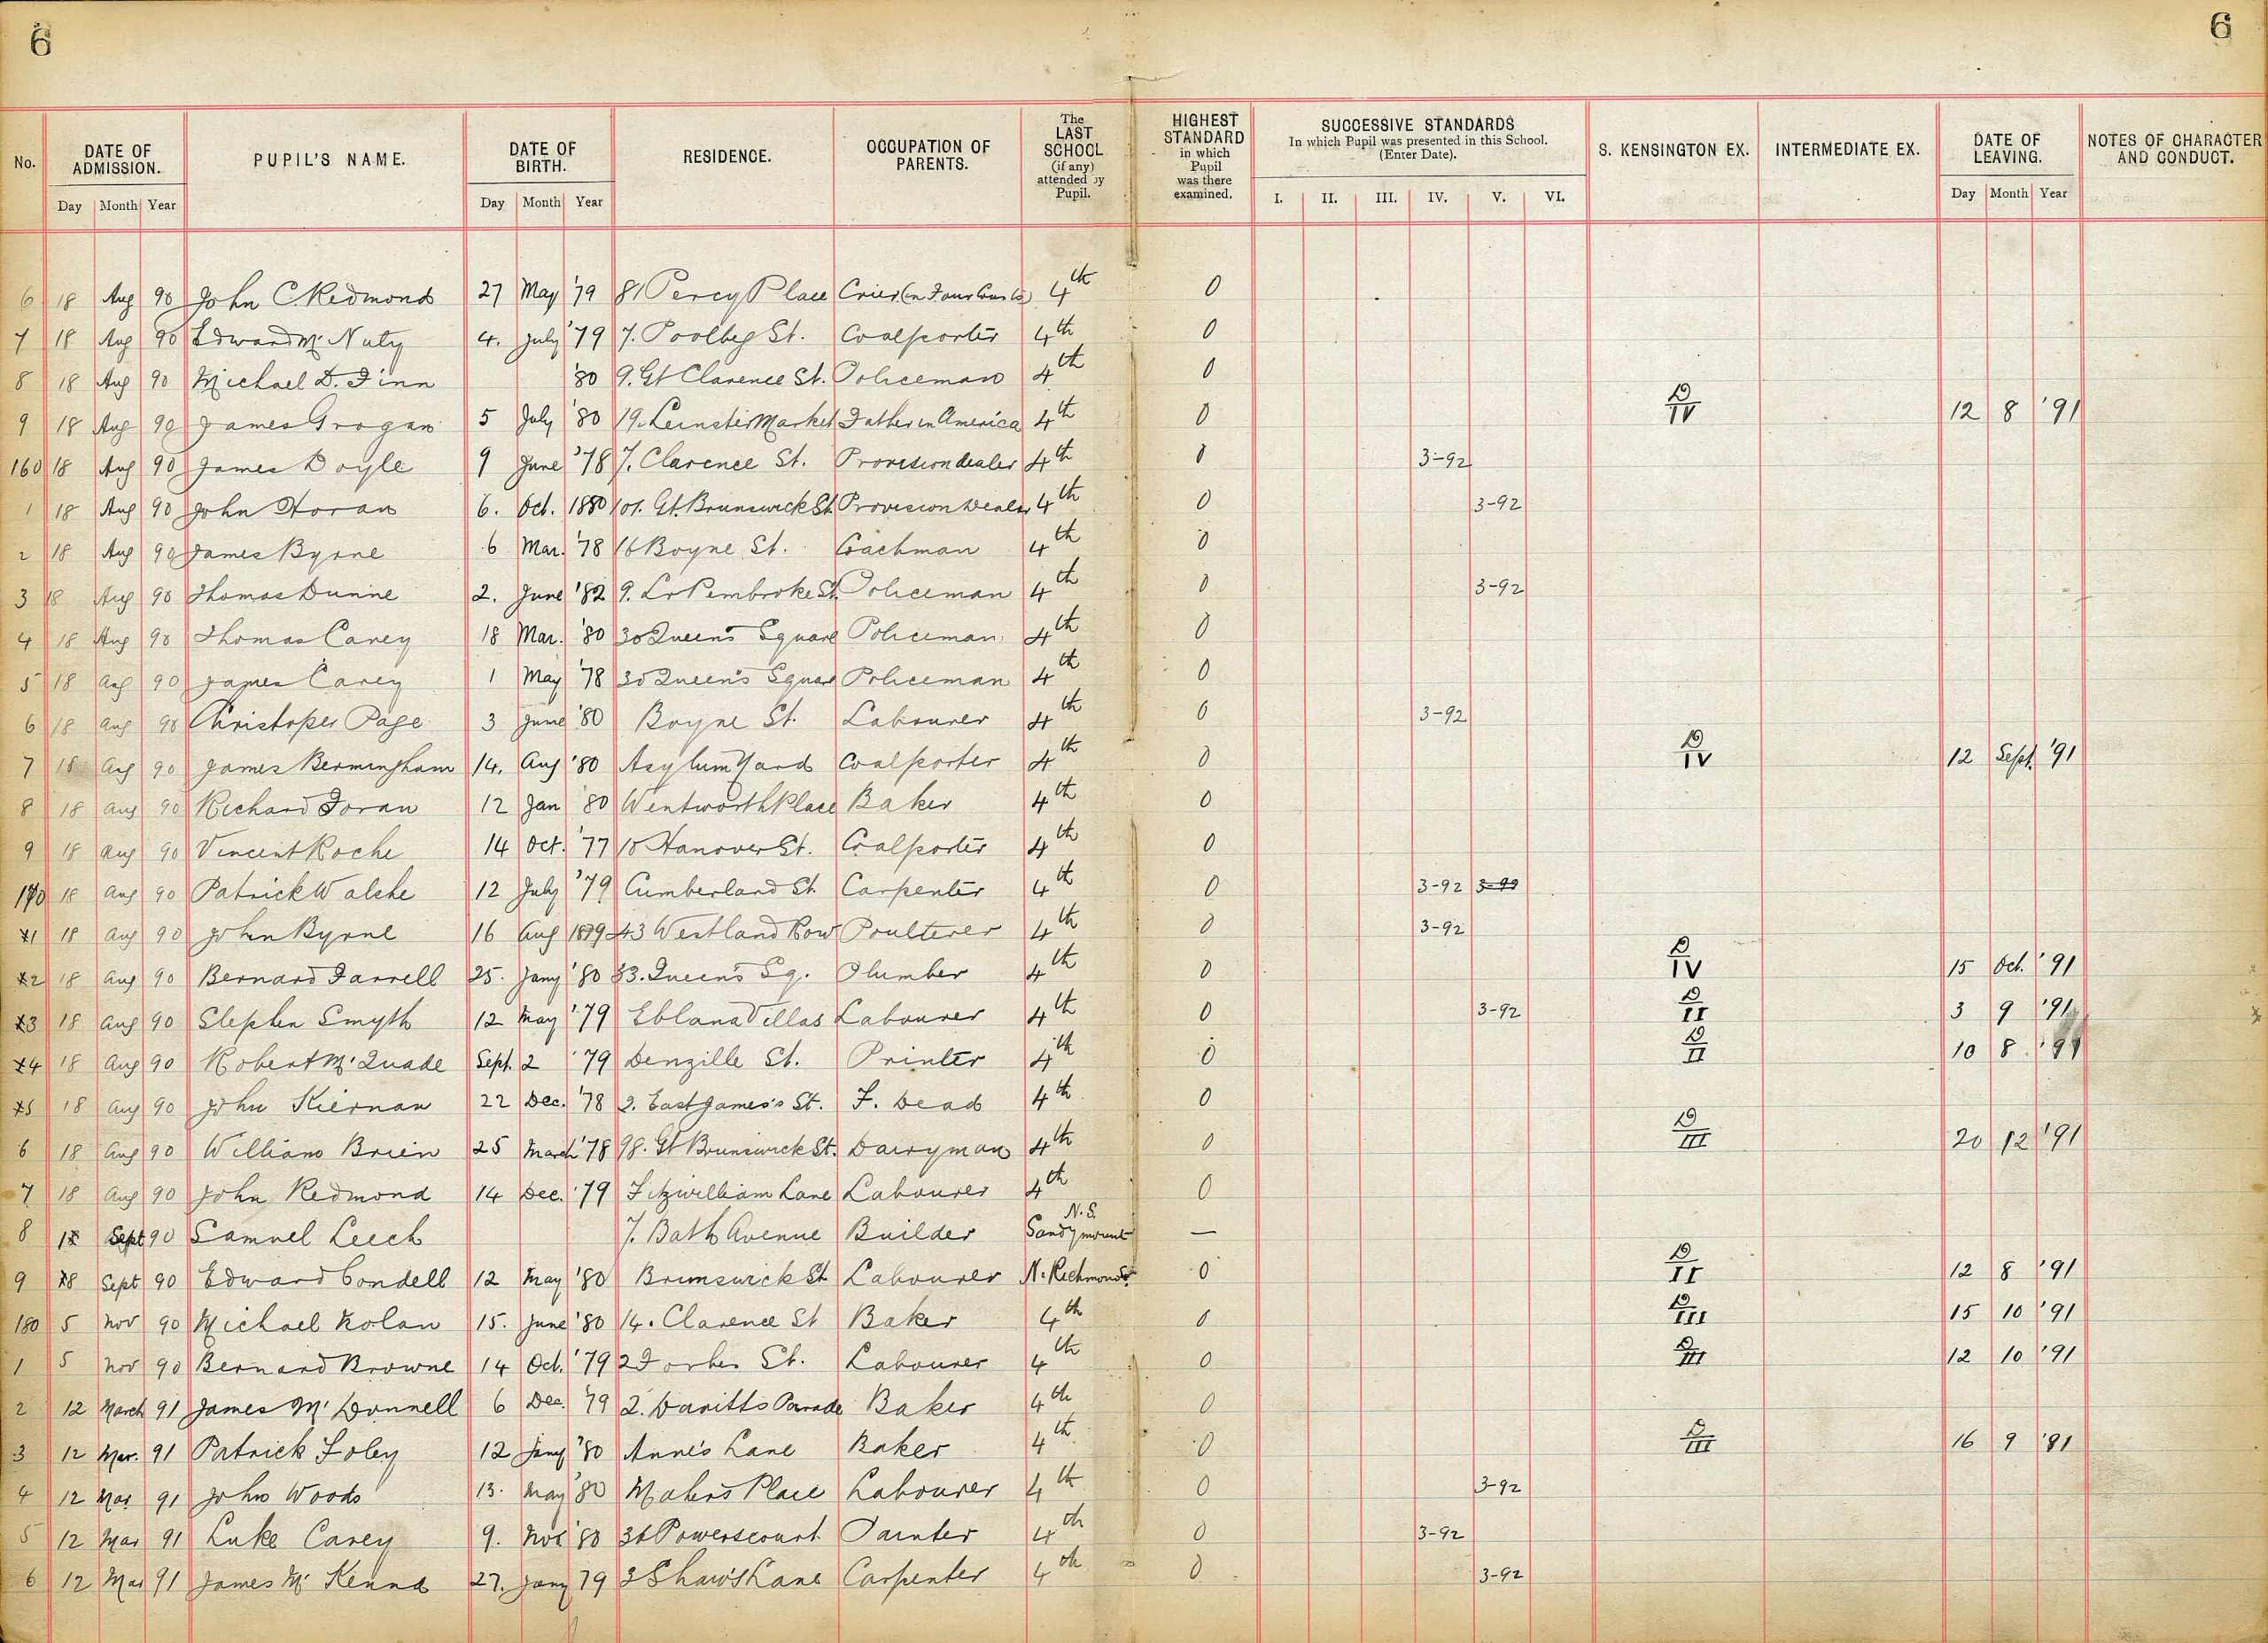 6 6
No. DATE OF ADMISSION. PUPIL'S NAME. DATE OF BIRTH. RESIDENCE. OCCUPATION OF PARENTS. The LAST SCHOOL (if any) attended by Pupil. HIGHEST STANDARD in which Pupil was there examined. SUCCESSIVE STANDARDS In which Pupil was presented in this School. (Enter Date). S. KENSINGTON EX. INTERMEDIATE EX. DATE OF LEAVING. NOTES OF CHARACTER AND CONDUCT.
Day Month Year Day Month Year I. II. III. IV. V. VI. Day Month Year
6 18 Aug 90 John C. Redmond 27 May '79 81 Percy Place Crier (in Four Courts) 4th 0
7 18 Aug 90 Edward Mc Nuty 4. July '79 7. Poolbeg St. Coalporter 4th 0
8 18 Aug 90 Michael D. Finn '80 9. Gt Clarence St. Policeman 4th 0
9 18 Aug 90 James Grogan 5 July '80 19. Leinster Market Father in America 4th 0 D/IV 12 8 '91
160 18 Aug 90 James Doyle 9 June '78 7. Clarence St. Provision dealer 4th 0 3-92
1 18 Aug 90 John Horan 6. Oct. 1880 101. Gt. Brunswick St. Provision Dealer 4th 0 3-92
2 18 Aug 90 James Byrne 6 Mar. '78 16 Boyne St. Coachman 4th 0
3 18 Aug 90 Thomas Dunne 2. June '82 9. Lr Pembroke St. Policeman 4th 0 3-92
4 18 Aug 90 Thomas Carey 18 Mar. '80 30 Queen's Square Policeman 4th 0
5 18 Aug 90 James Carey 1 May '78 30 Queen's Square Policeman 4th 0
6 18 Aug 90 Christoper Page 3 June '80 Boyne St. Labourer 4th 0 3-92
7 18 Aug 90 James Bermingham 14. Aug '80 Asylum Yard Coalporter 4th 0 D/IV 12 Sept. '91
8 18 Aug 90 Richard Foran 12 Jan '80 Wentworth Place Baker 4th 0
9 18 Aug 90 Vincent Roche 14 Oct. '77 10 Hanover St. Coalporter 4th 0
170 18 Aug 90 Patrick Walshe 12 July '79 Cumberland St. Carpenter 4th 0 3-92
1 18 Aug 90 John Byrne 16 Aug 1879 43 Westland Row Poulterer 4th 0 3-92
2 18 Aug 90 Bernard Farrell 25. Jany '80 33. Queen's Sq. Plumber 4th 0 D/IV 15 Oct. '91
3 18 Aug 90 Stephen Smyth 12 May '79 Eblana Villas Labourer 4th 0 3-92 D/II 3 9 '91
4 18 Aug 90 Robert Mc Quade Sept. 2 '79 Denzille St. Printer 4th 0 D/II 10 8 '91
5 18 Aug 90 John Kiernan 22 Dec. '78 2. East James's St. F. Dead 4th 0
6 18 Aug 90 William Brien 25 March '78 98. Gt Brunswick St. Dairyman 4th 0 D/III 20 12 '91
7 18 Aug 90 John Redmond 14 Dec. '79 Fitzwilliam Lane Labourer 4th 0
8 1 Sept 90 Samuel Leech 7. Bath Avenue Builder Sandymount N.S. —
9 8 Sept 90 Edward Condell 12 May '80 Brunswick St Labourer N. Richmond St. 0 D/II 12 8 '91
180 5 Nov 90 Michael Nolan 15. June '80 14. Clarence St Baker 4th 0 D/III 15 10 '91
1 5 Nov 90 Bernard Browne 14 Oct. '79 2 Forbes St. Labourer 4th 0 D/III 12 10 '91
2 12 March 91 James Mc Donnell 6 Dec. '79 2. Davitts Parade Baker 4th 0
3 12 Mar. 91 Patrick Foley 12 Jany '80 Anne's Lane Baker 4th 0 D/III 16 9 '91
4 12 Mar 91 John Woods 13. May '80 Mahers Place Labourer 4th 0 3-92
5 12 Mar 91 Luke Carey 9. Nov '80 36 Powerscourt Painter 4th 0 3-92
6 12 Mar 91 James Mc Kenna 27. Jany 79 3 Shaw's Lane Carpenter 4th 0 3-92